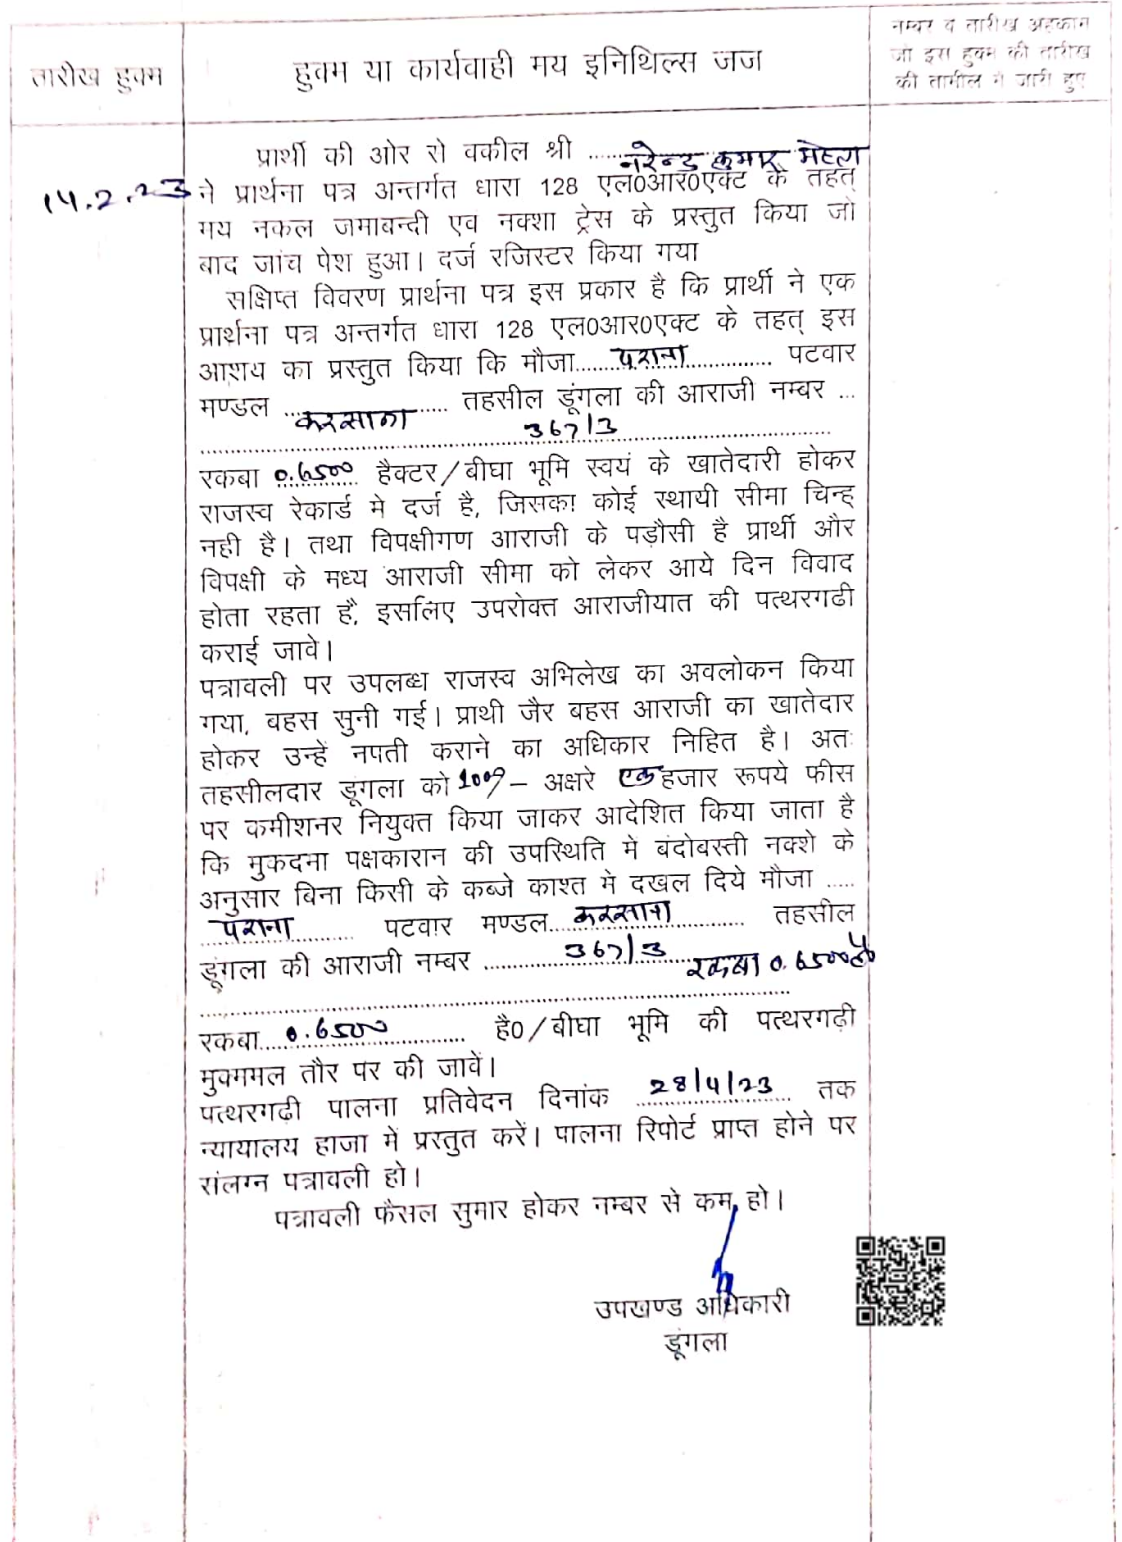 तारीख हुक्म
हुक्म या कार्यवाही मय इनिथिल्स जज
नम्बर व तारीख अहकाम
जो इस हुक्म की तारीख
की तामील में जारी हुए
14.2.23
प्रार्थी की ओर से वकील श्री ...... नरेन्द्र कुमार मेहता
ने प्रार्थना पत्र अन्तर्गत धारा 128 एल0आर0एक्ट के तहत्
मय नकल जमाबन्दी एव नक्शा ट्रेस के प्रस्तुत किया जो
बाद जांच पेश हुआ। दर्ज रजिस्टर किया गया
सक्षिप्त विवरण प्रार्थना पत्र इस प्रकार है कि प्रार्थी ने एक
प्रार्थना पत्र अन्तर्गत धारा 128 एल0आर0एक्ट के तहत् इस
आशय का प्रस्तुत किया कि मौजा.....पराना............ पटवार
मण्डल ... करसाना ...... तहसील डूंगला की आराजी नम्बर ...
367/3
रकबा 0.6500 हैक्टर/बीघा भूमि स्वयं के खातेदारी होकर
राजस्व रेकार्ड मे दर्ज है, जिसका कोई स्थायी सीमा चिन्ह्
नही है। तथा विपक्षीगण आराजी के पड़ौसी है प्रार्थी और
विपक्षी के मध्य आराजी सीमा को लेकर आये दिन विवाद
होता रहता है, इसलिए उपरोक्त आराजीयात की पत्थरगढी
कराई जावे।
पत्रावली पर उपलब्ध राजस्व अभिलेख का अवलोकन किया
गया, बहस सुनी गई। प्राथी जैर बहस आराजी का खातेदार
होकर उन्हें नपती कराने का अधिकार निहित है। अतः
तहसीलदार डूंगला को 1000/- अक्षरे एक हजार रूपये फीस
पर कमीशनर नियुक्त किया जाकर आदेशित किया जाता है
कि मुकदमा पक्षकारान की उपस्थिति में बंदोबस्ती नक्शे के
अनुसार बिना किसी के कब्जे काश्त मे दखल दिये मौजा .....
पराना ......... पटवार मण्डल...करसाना.......... तहसील
डूंगला की आराजी नम्बर ............367/3.... रकबा 0.6500 है
रकबा....0.6500........... है0/बीघा भूमि की पत्थरगढ़ी
मुक्ममल तौर पर की जावें।
पत्थरगढ़ी पालना प्रतिवेदन दिनांक ..28/4/23.. तक
न्यायालय हाजा में प्रस्तुत करें। पालना रिपोर्ट प्राप्त होने पर
संलग्न पत्रावली हो।
पत्रावली फैसल सुमार होकर नम्बर से कम हो।
उपखण्ड अधिकारी
डूंगला